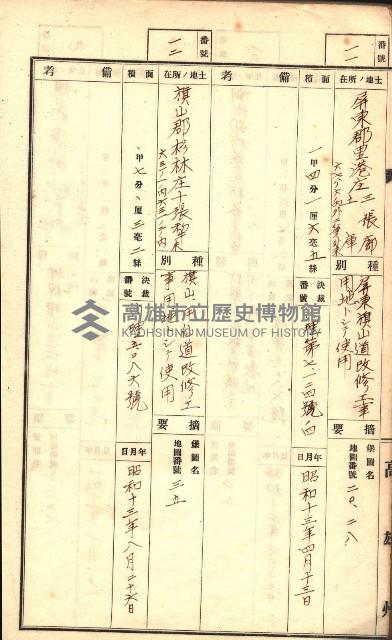 番號
一一
土地ノ所在
屏東郡里港庄三張廍
種別
屏東旗山道改修工事
用地トシテ使用
摘要
堡圖名
地圖番號
二〇、二八
面積
一甲四分一厘六毫五絲
決裁番號
年月日
昭和十三年四月十三日
備考
番號
一二
土地ノ所在
旗山郡杉林庄十張犁
種別
旗山甲仙道改修工
事用地トシテ使用
摘要
堡圖名
地圖番號
三五
面積
、甲七分、厘三毫二絲
決裁番號
年月日
昭和十三年八月二十六日
備考
高雄州
高雄市立歷史博物館
KAOHSIUNG MUSEUM OF HISTORY